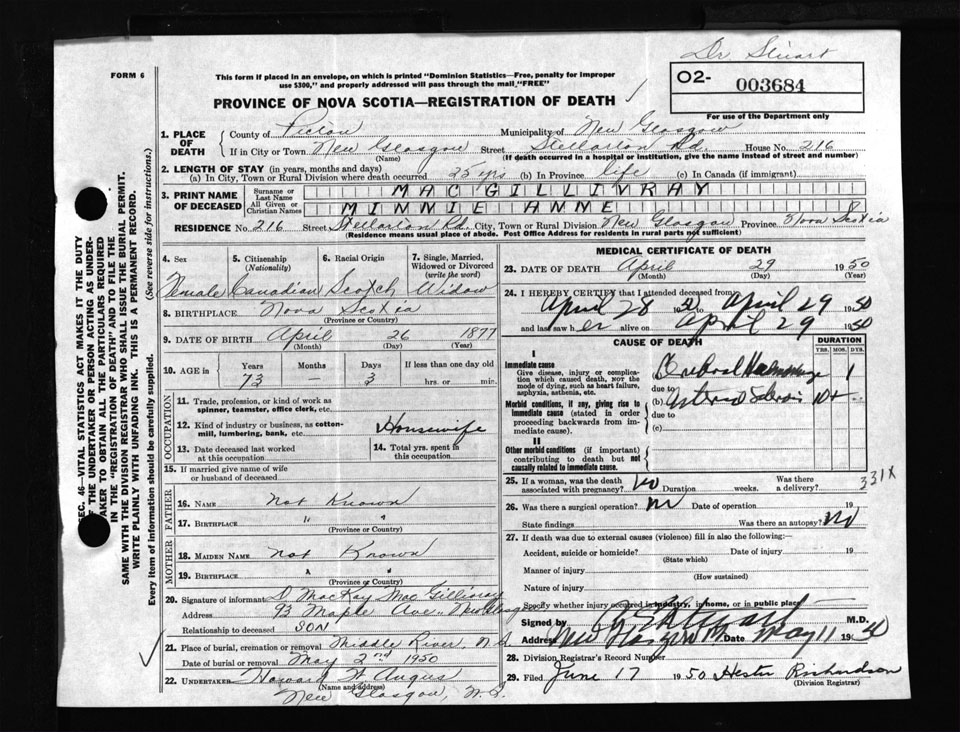 Dr Stuart
FORM 6
This form if placed in an envelope, on which is printed "Dominion Statistics—Free, penalty for improper
use $300," and properly addressed will pass through the mail "FREE"
O2- 003684
For use of the Department only
PROVINCE OF NOVA SCOTIA—REGISTRATION OF DEATH
1. PLACE OF DEATH
County of Pictou Municipality of New Glasgow
If in City or Town New Glasgow Street Stellarton Rd. House No. 216
(Name) (If death occurred in a hospital or institution, give the name instead of street and number)
2. LENGTH OF STAY (in years, months and days)
(a) In City, Town or Rural Division where death occurred 35 yrs (b) In Province life (c) In Canada (if immigrant)
3. PRINT NAME OF DECEASED
Surname or Last Name MACGILLIVRAY
All Given or Christian Names MINNIE ANNE
RESIDENCE No. 216 Street Stellarton Rd. City, Town or Rural Division New Glasgow Province Nova Scotia
(Residence means usual place of abode. Post Office Address for residents in rural parts not sufficient)
4. Sex
Female
5. Citizenship
(Nationality)
Canadian
6. Racial Origin
Scotch
7. Single, Married, Widowed or Divorced
(write the word)
Widow
8. BIRTHPLACE Nova Scotia
(Province or Country)
9. DATE OF BIRTH April 26 1877
(Month) (Day) (Year)
10. AGE in Years Months Days If less than one day old
73 — 3 hrs. or min.
OCCUPATION
11. Trade, profession, or kind of work as
spinner, teamster, office clerk, etc.
12. Kind of industry or business, as cotton-
mill, lumbering, bank, etc. Housewife
13. Date deceased last worked
at this occupation
14. Total yrs. spent in
this occupation
15. If married give name of wife
or husband of deceased
FATHER
16. NAME Not Known
17. BIRTHPLACE " "
(Province or Country)
MOTHER
18. MAIDEN NAME Not Known
19. BIRTHPLACE " "
(Province or Country)
20. Signature of informant D MacKay MacGillivray
Address 93 Maple Ave. New Glasgow
Relationship to deceased SON
21. Place of burial, cremation or removal Middle River, N.S.
Date of burial or removal May 2nd 1950
22. UNDERTAKER Howard W. Angus
(Name and address)
New Glasgow, N.S.
MEDICAL CERTIFICATE OF DEATH
23. DATE OF DEATH April 29 1950
(Month) (Day) (Year)
24. I HEREBY CERTIFY that I attended deceased from
April 28 1950 to April 29 1950
and last saw her alive on April 29 1950
CAUSE OF DEATH DURATION
YRS. MOS. DYS.
I
Immediate cause
Give disease, injury or compli-
cation which caused death, NOT the
mode of dying, such as heart failure,
asphyxia, asthenia, etc.
(a) Cerebral Haemorrhage 1
due to
Morbid conditions, if any, giving rise to
immediate cause (stated in order
proceeding backwards from im-
mediate cause).
(b) Arterio Sclerosis 10+
due to
(c)
II
Other morbid conditions (if important)
contributing to death but not
causally related to immediate cause.
331X
25. If a woman, was the death
associated with pregnancy? No Duration weeks. Was there
a delivery?
26. Was there a surgical operation? no Date of operation 19
State findings Was there an autopsy? No
27. If death was due to external causes (violence) fill in also the following:
Accident, suicide or homicide? Date of injury 19
(State which)
Manner of injury
(How sustained)
Nature of injury
Specify whether injury occurred in industry, in home, or in public place
Signed by Stewart M.D.
Address New Glasgow Date May 11 1950
28. Division Registrar's Record Number
29. Filed June 17 1950 Hester Richardson
(Division Registrar)
SEC. 46—VITAL STATISTICS ACT MAKES IT THE DUTY
OF THE UNDERTAKER OR PERSON ACTING AS UNDER-
TAKER TO OBTAIN ALL THE PARTICULARS REQUIRED
IN THE "REGISTRATION OF DEATH" AND TO FILE THE
SAME WITH THE DIVISION REGISTRAR WHO SHALL ISSUE THE BURIAL PERMIT.
WRITE PLAINLY WITH UNFADING INK. THIS IS A PERMANENT RECORD.
Every item of information should be carefully supplied. (See reverse side for instructions.)